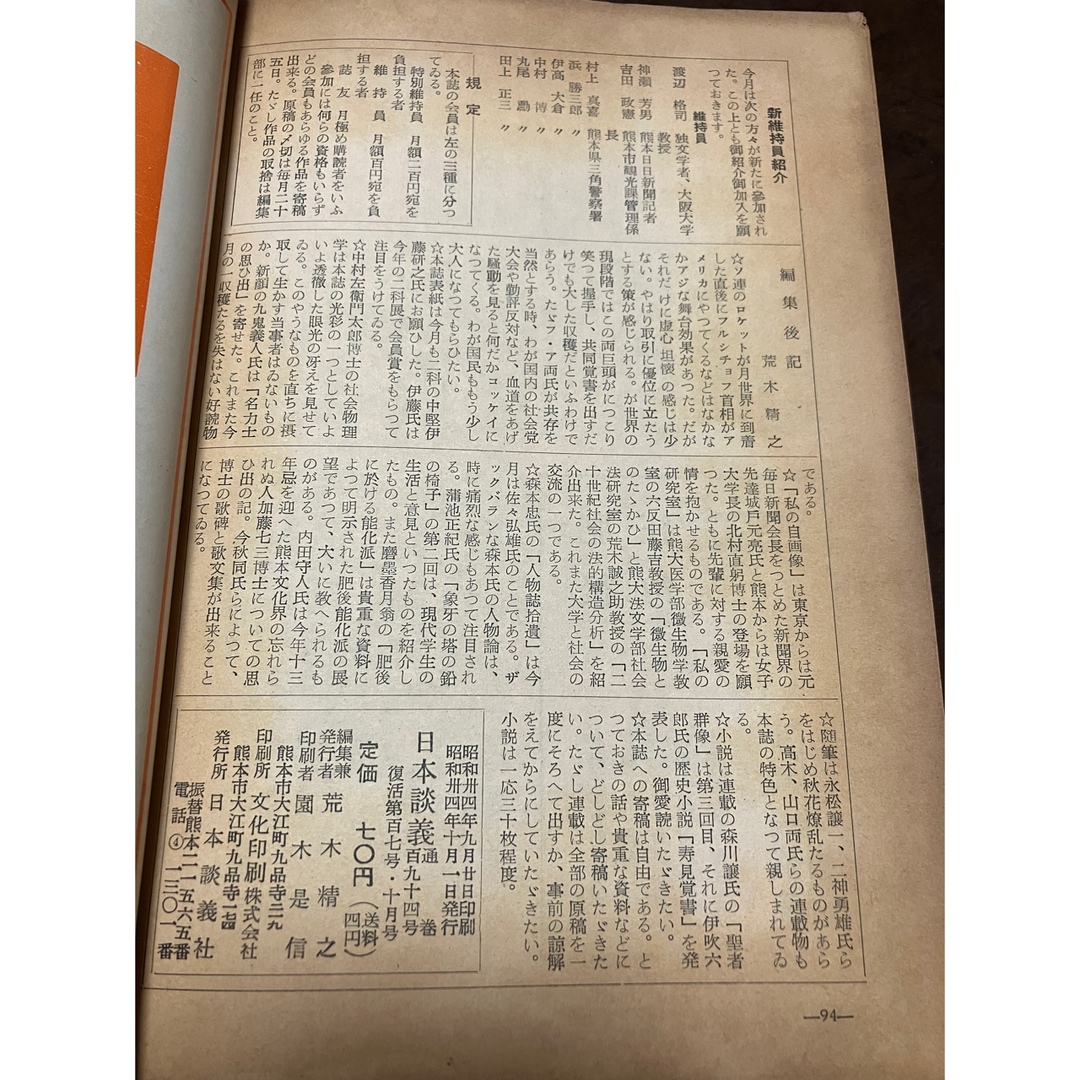 新維持員紹介
今月は次の方々が新たに参加され
た。この上とも御紹介御加入を願
つておきます。
維持員
渡辺 格司 独文学者、大阪大学
教授
神瀬 芳男 熊本日日新聞記者
吉田 政憲 熊本市観光課管理係
長
村上 真喜 熊本県三角警察署
浜 勝三郎 〃
伊高 大倉 〃
中村 博 〃
丸尾 勲 〃
田上 正三 〃
規定
本誌の会員は左の三種に分つ
てゐる。
特別維持員 月額二百円宛を
負担する者
維持員 月額百円宛を負
担する者
誌友 月極め購読者をいふ
参加には何らの資格もいらず
どの会員もあらゆる作品を寄稿
出来る。原稿の〆切は毎月二十
五日。たゞし作品の取捨は編集
部に一任のこと。
編集後記
荒木精之
☆ソ連のロケットが月世界に到着
した直後にフルシチョフ首相がア
メリカにやつてくるなどはなかな
かアジな舞台効果があつた。だが
それだけに虚心坦懐の感じは少
ない。やはり取引に優位に立たう
とする策が感じられる。が世界の
現段階ではこの両巨頭がにつこり
笑つて握手し、共同覚書を出すだ
けでも大した収穫だといふわけで
あらう。たゞフ・ア両氏が共存を
当然とする時、わが国内の社会党
大会や勤評反対など、血道をあげ
た騒動を見ると何だかコッケイに
なつてくる。わが国民ももう少し
大人になつてもらひたい。
☆本誌表紙は今月も二科の中堅伊
藤研之氏にお願ひした。伊藤氏は
今年の二科展で会員賞をもらつて
注目をうけてゐる。
☆中村左衛門太郎博士の社会物理
学は本誌の光彩の一つとしていよ
いよ透徹した眼光の冴えを見せて
ゐる。このやうなものを直ちに摂
取して生かす当事者はゐないもの
か。新顔の九鬼義人氏は「名力士
の思ひ出」を寄せた。これまた今
月の一収穫たるを失はない好読物
である。
☆「私の自画像」は東京からは元
毎日新聞会長をつとめた新聞界の
先達城戸元亮氏と熊本からは女子
大学長の北村直躬博士の登場を願
つた。ともに先輩に対する親愛の
情を抱かせるものである。「私の
研究室」は熊大医学部微生物学教
室の六反田藤吉教授の「微生物と
のたゝかひ」と熊大法文学部社会
法研究室の荒木誠之助教授の「二
十世紀社会の法的構造分析」を紹
介出来た。これまた大学と社会の
交流の一つである。
☆森本忠氏の「人物誌拾遺」は今
月は佐々弘雄氏のことである。ザ
ックバランな森本氏の人物論は、
時に痛烈な感じもあつて注目され
る。蒲池正紀氏の「象牙の塔の鉛
の椅子」の第二回は、現代学生の
生活と意見といつたものを紹介し
たもの。また磨墨香月翁の「肥後
に於ける能化派」は貴重な資料に
よつて明示された肥後能化派の展
望であつて、大いに教へられるも
のがある。内田守人氏は今年十三
年忌を迎へた熊本文化界の忘れら
れぬ人加藤七三博士についての思
ひ出の記。今秋同氏らによつて、
博士の歌碑と歌文集が出来ること
になつてゐる。
☆随筆は永松譲一、二神勇雄氏ら
をはじめ秋花燎乱たるものがあら
う。高木、山口両氏らの連載物も
本誌の特色となつて親しまれてゐ
る。
☆小説は連載の森川譲氏の「聖者
群像」は第三回目、それに伊吹六
郎氏の歴史小説「寿見覚書」を発
表した。御愛読いたゞきたい。
☆本誌への寄稿は自由である。と
つておきの話や貴重な資料などに
ついて、どしどし寄稿いたゞきた
い。たゞし連載は全部の原稿を一
度にそろへて出すか、事前の諒解
をえてからにしていたゞきたい。
小説は一応三十枚程度。
昭和卅四年九月廿日印刷
昭和卅四年十月一日発行
日本談義 通巻百九十四号
復活第百七号・十月号
定価 七〇円（送料四円）
編集兼発行者 荒木精之
印刷者 園木是信
熊本市大江町九品寺三一九
印刷所 文化印刷株式会社
熊本市大江町九品寺一四
発行所 日本談義社
振替熊本二一五六五番
電話④一三〇一番
—94—